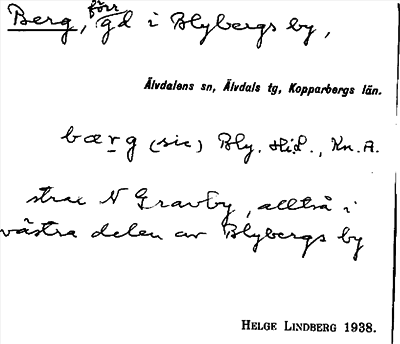 Berg, förr gd i Blybergs by,
Älvdalens sn, Älvdals tg, Kopparbergs län.
bærg (sic) Bly. Hid., Kn. A.
strax N Gravby, alltså i
västra delen av Blybergs by
HELGE LINDBERG 1938.